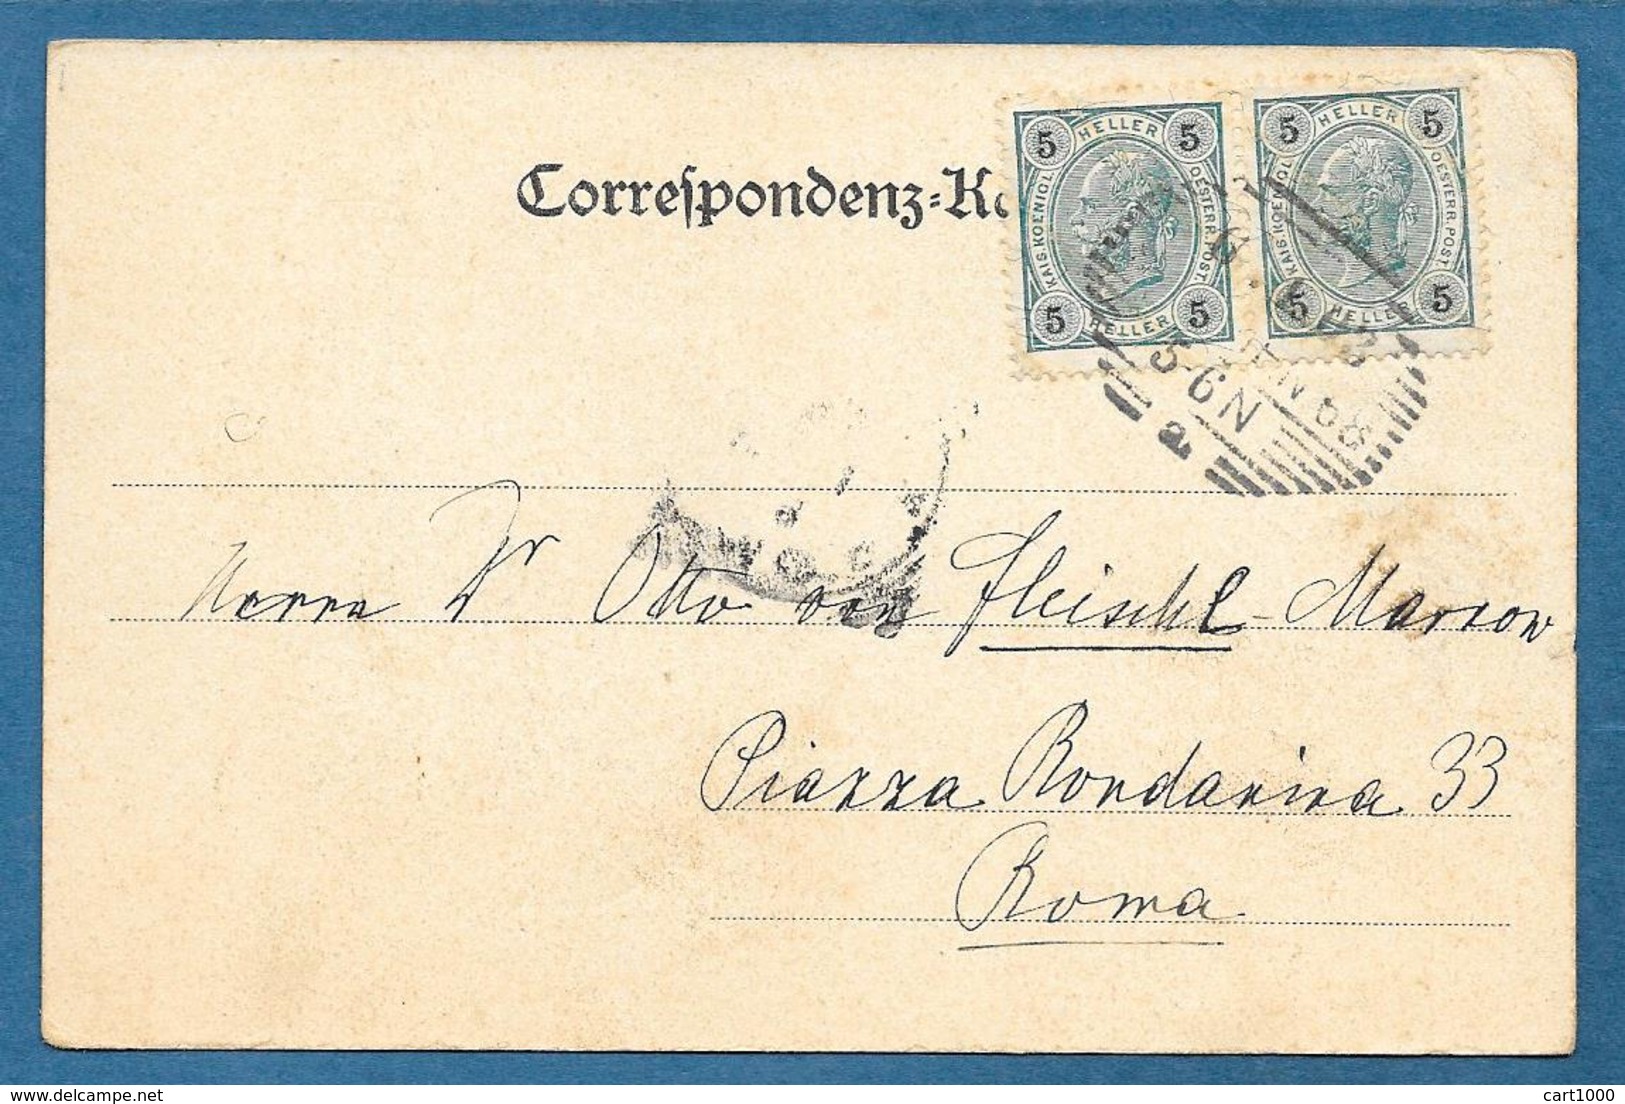 Correspondenz-Ka
5 HELLER 5
KAIS. KOENIGL. OESTERR. POST.
5 HELLER 5
5 HELLER 5
KAIS. KOENIGL. OESTERR. POST.
5 HELLER 5
5-6N
2
Herrn Dr Otto von Fleischl-Marxow
Piazza Rondanina 33
Roma
delcampe.net
cart1000